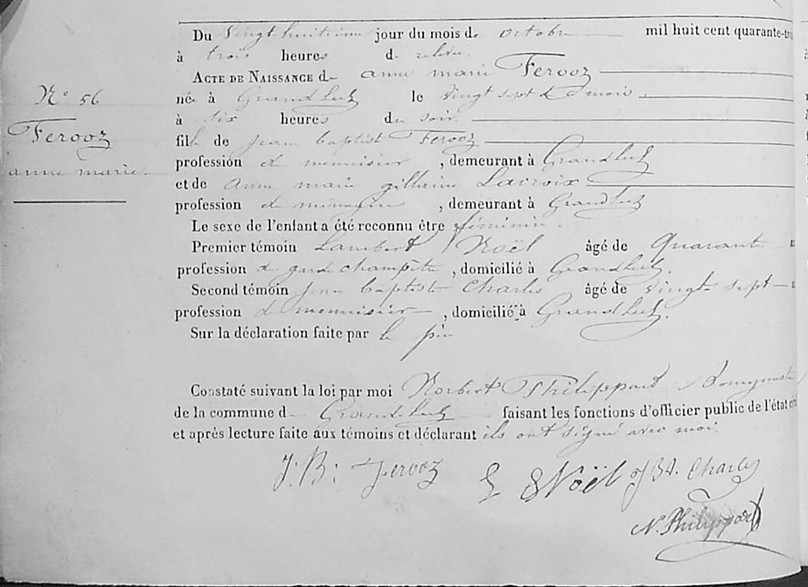 N° 56
Ferooz
anne marie
Du Vingt huitième jour du mois d octobre mil huit cent quarante-tro
à trois heures d relevé
ACTE DE NAISSANCE d anne marie Ferooz
né à Grandleez le vingt sept d mois
à six heures du soir
fil de jean baptiste Ferooz
profession d menuisier , demeurant à Grandleez
et de Anne marie ghilaine Lacroix
profession d ménagère , demeurant à Grandleez
Le sexe de l'enfant a été reconnu être féminin
Premier témoin Lambert Noël âgé de Quarante
profession d garde champêtre , domicilié à Grandleez.
Second témoin jean baptiste Charles âgé de vingt sept
profession d menuisier , domicilié à Grandleez.
Sur la déclaration faite par le père
Constaté suivant la loi par moi Norbert Philippart Bourgmestre
de la commune d Grandleez faisant les fonctions d'officier public de l'état civ
et après lecture faite aux témoins et déclarant ils ont signé avec moi
J: B: Ferooz L Noël J Bt. Charles
N. Philippart